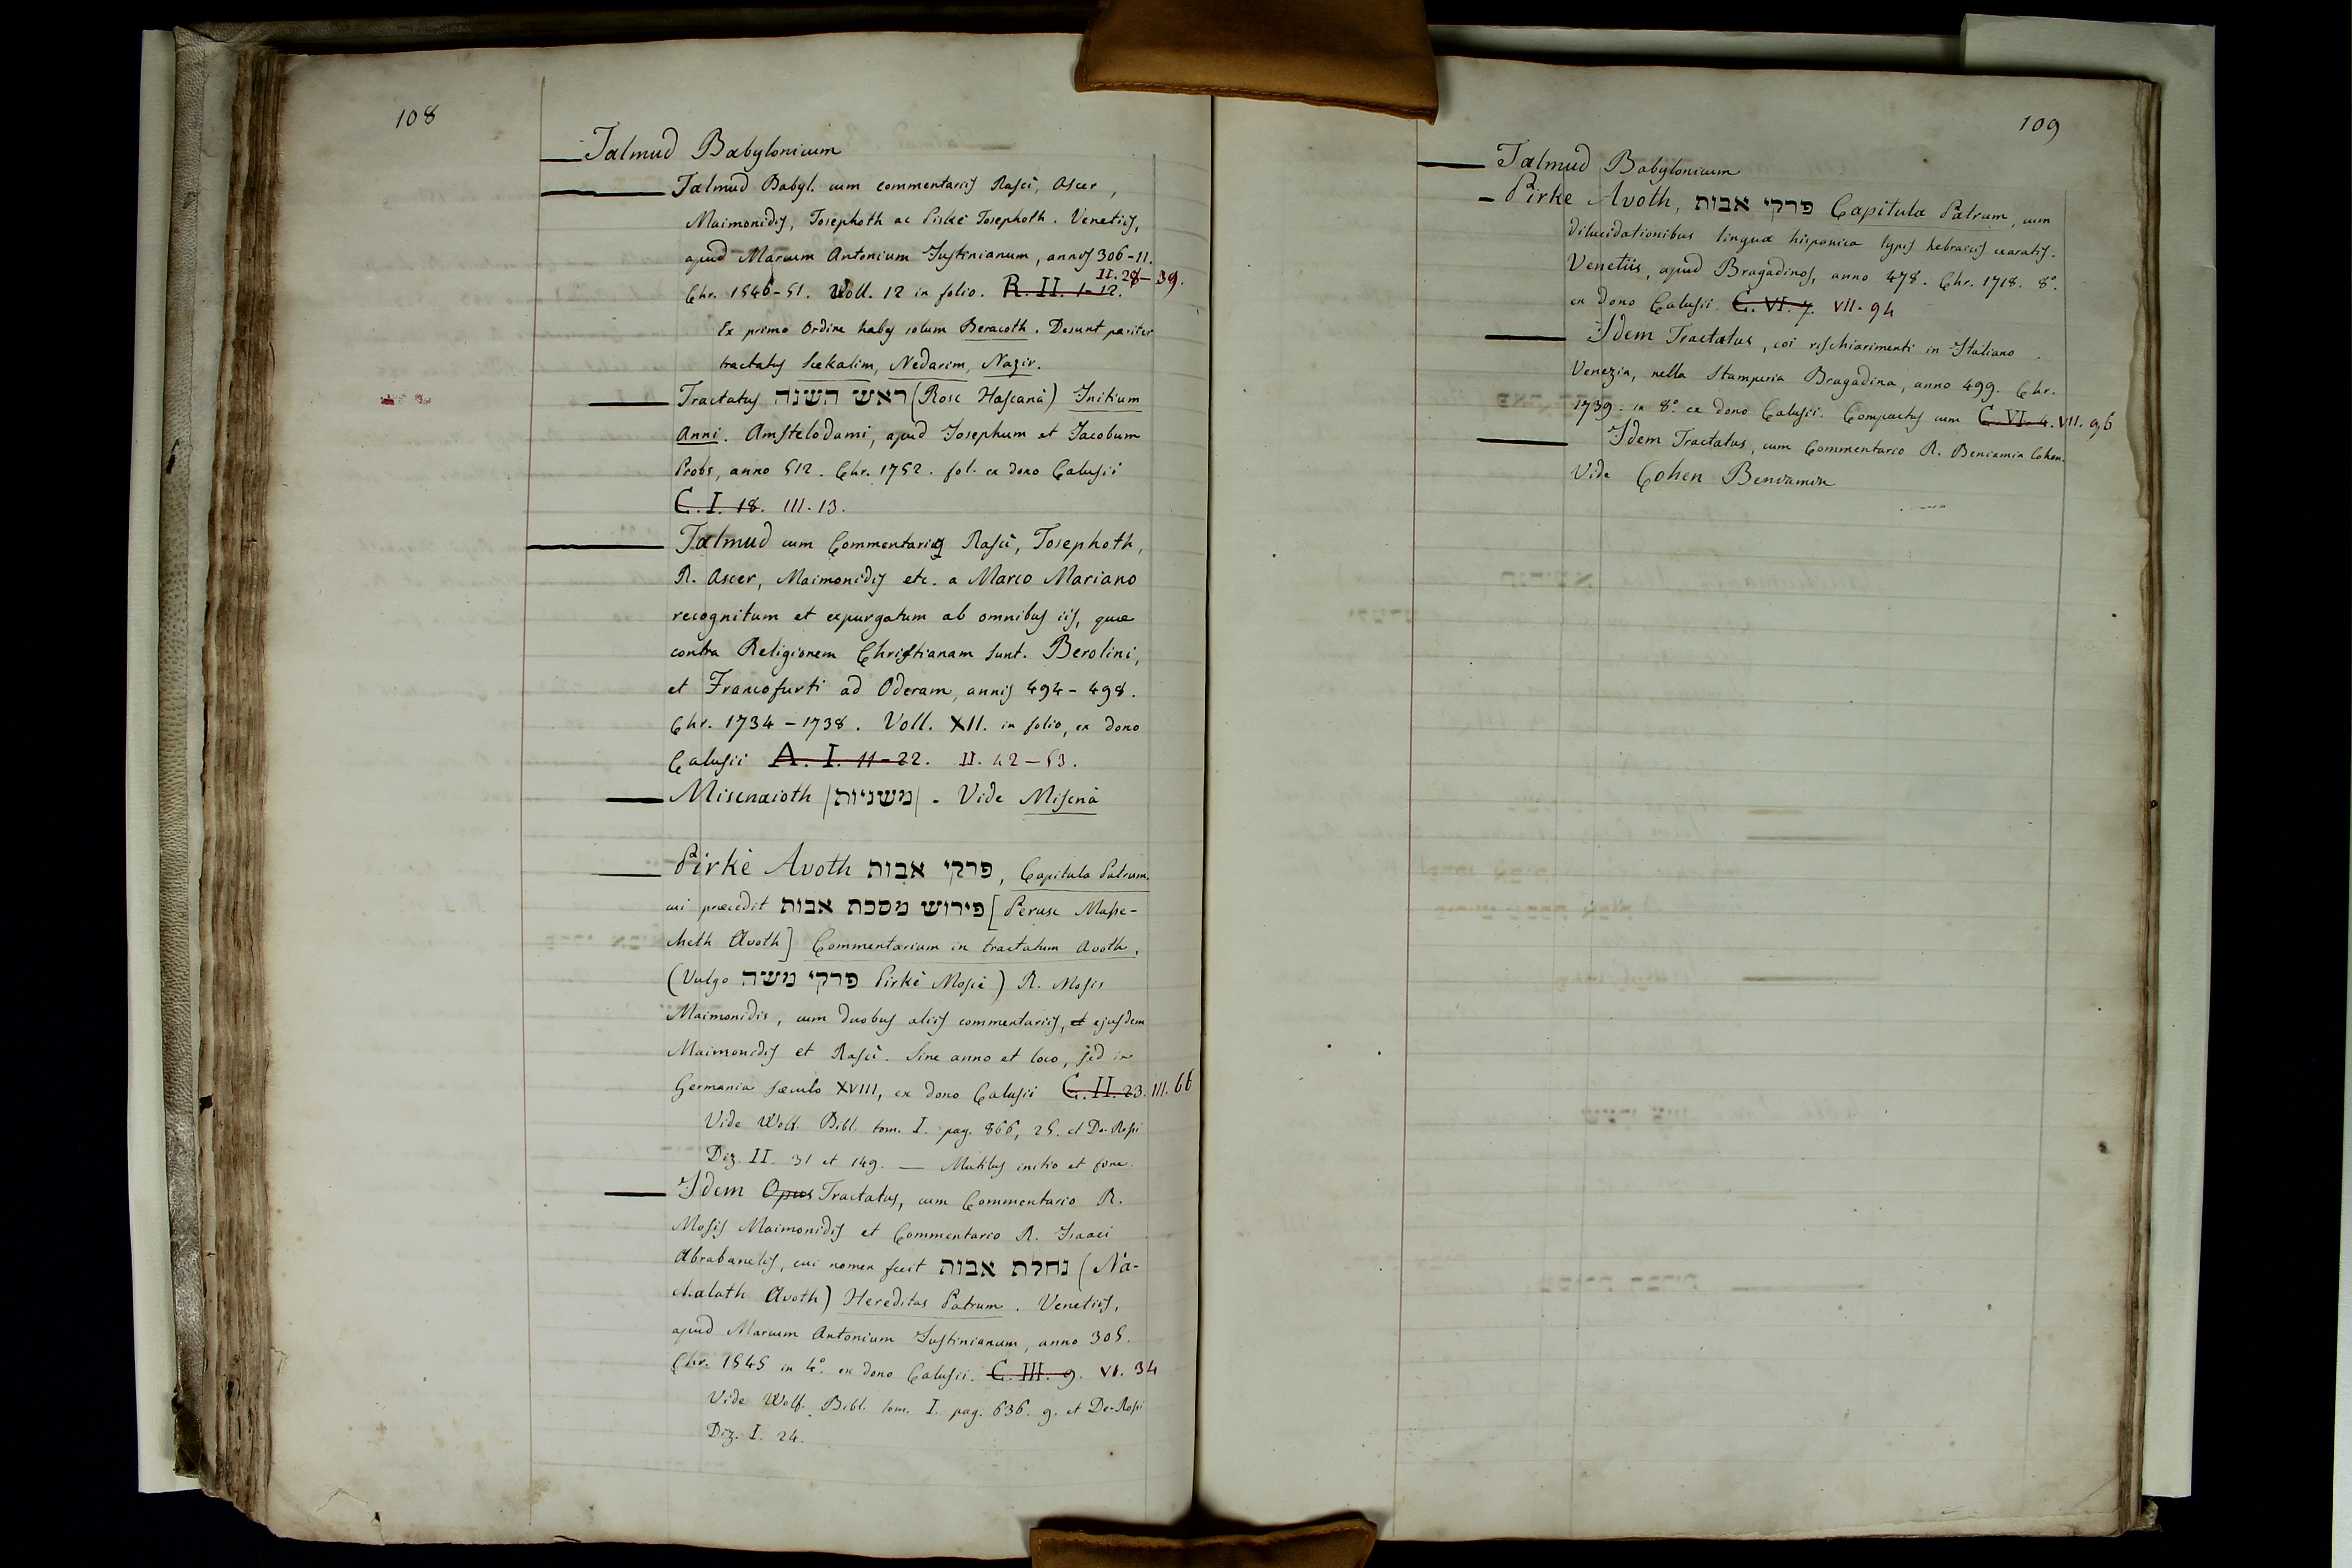 108
Talmud Babylonicum
Talmud Babyl. cum commentariis Rascì, Ascer,
Maimonidis, Tosephoth ac Piskè Tosephoth. Venetiis,
apud Marcum Antonium Justinianum, annis 306-11.
II. 28-39.
Chr. 1546-51. Voll. 12 in folio. R. II. 1-12.
Ex primo Ordine habes solum Beracoth. Desunt pariter
tractatus Scekalim, Nedarim, Nazir.
Tractatus ראש השנה (Rosc Hascanà) Initium
Anni. Amstelodami, apud Josephum et Jacobum
Probs, anno 512. Chr. 1752. fol. ex dono Calusii
C. I. 18. III. 13.
Talmud cum Commentariis Rascì, Tosephoth,
R. Ascer, Maimonidis etc. a Marco Mariano
recognitum et expurgatum ab omnibus iis, quæ
contra Religionem Christianam sunt. Berolini,
et Francofurti ad Oderam, annis 494-498.
Chr. 1734-1738. Voll. XII. in folio, ex dono
Calusii A. I. 11-22. II. 42-53.
Miscnaioth (משניות). Vide Miscnà
Pirkè Avoth פרקי אבות, Capitula Patrum.
cui præcedit פירוש מסכת אבות [Perusc Masse-
cheth Avoth] Commentarium in tractatum Avoth.
(Vulgo פרקי משה Pirkè Moscè) R. Mosis
Maimonidis, cum duobus aliis commentariis, et ejusdem
Maimonidis et Rascì. Sine anno et loco, sed in
Germania sæculo XVIII, ex dono Calusii C. II. 23. III. 66
Vide Wolf. Bibl. tom. I. pag. 866, 25. et De-Rossi
Diz. II. 31 et 149. — Mutilus initio et fine.
Idem Opus Tractatus, cum Commentario R.
Mosis Maimonidis et Commentario R. Isaaci
Abrabanelis, cui nomen fecit נחלת אבות (Na-
chalath Avoth) Hereditas Patrum. Venetiis,
apud Marcum Antonium Justinianum, anno 305.
Chr. 1545 in 4º. ex dono Calusii. C. III. 9. VI. 34
Vide Wolf. Bibl. tom. I. pag. 636. 9. et De-Rossi
Diz. I. 24.
109
Talmud Babylonicum
Pirke Avoth, פרקי אבות Capitula Patrum, cum
dilucidationibus lingua hispanica typis hebraicis exaratis.
Venetiis, apud Bragadinos, anno 478. Chr. 1718. 8º.
ex dono Calusii. C. VI. 7. VII. 94
Idem Tractatus, coi rischiarimenti in Italiano.
Venezia, nella Stamperia Bragadina, anno 499. Chr.
1739. in 8º. ex dono Calusii. Compactus cum C. VI. 4. VII. 96
Idem Tractatus, cum Commentario R. Beniamin Cohen.
Vide Cohen Beniamin